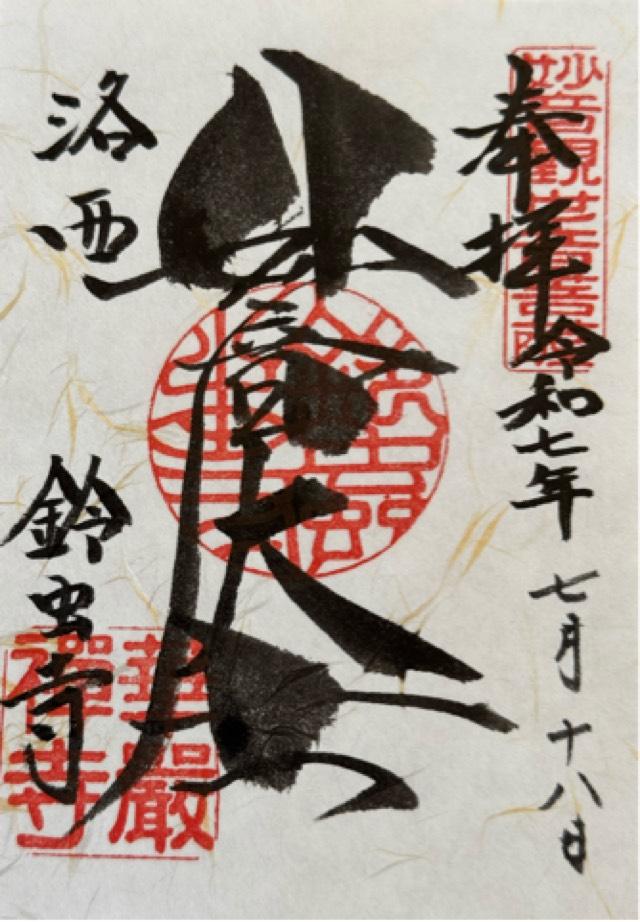 妙音觀世音菩薩
奉拝 令和七年 七月十八日
洛西 鈴虫寺
華嚴
禪寺